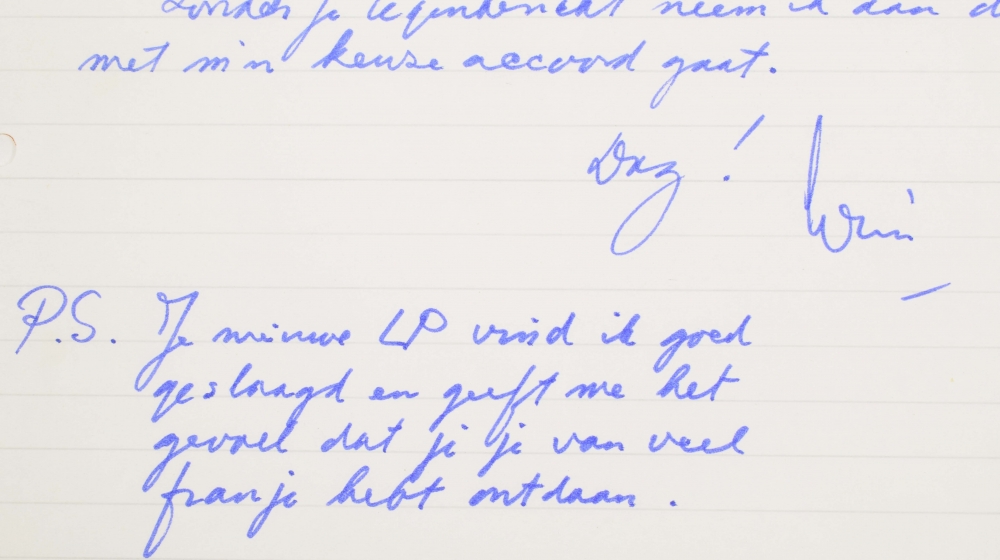 zonder je tegenbericht neem ik aan d
met m'n keuze accoord gaat.
Dag! Wim
P.S. Je nieuwe LP vind ik goed
geslaagd en geeft me het
gevoel dat je je van veel
franje hebt ontdaan.